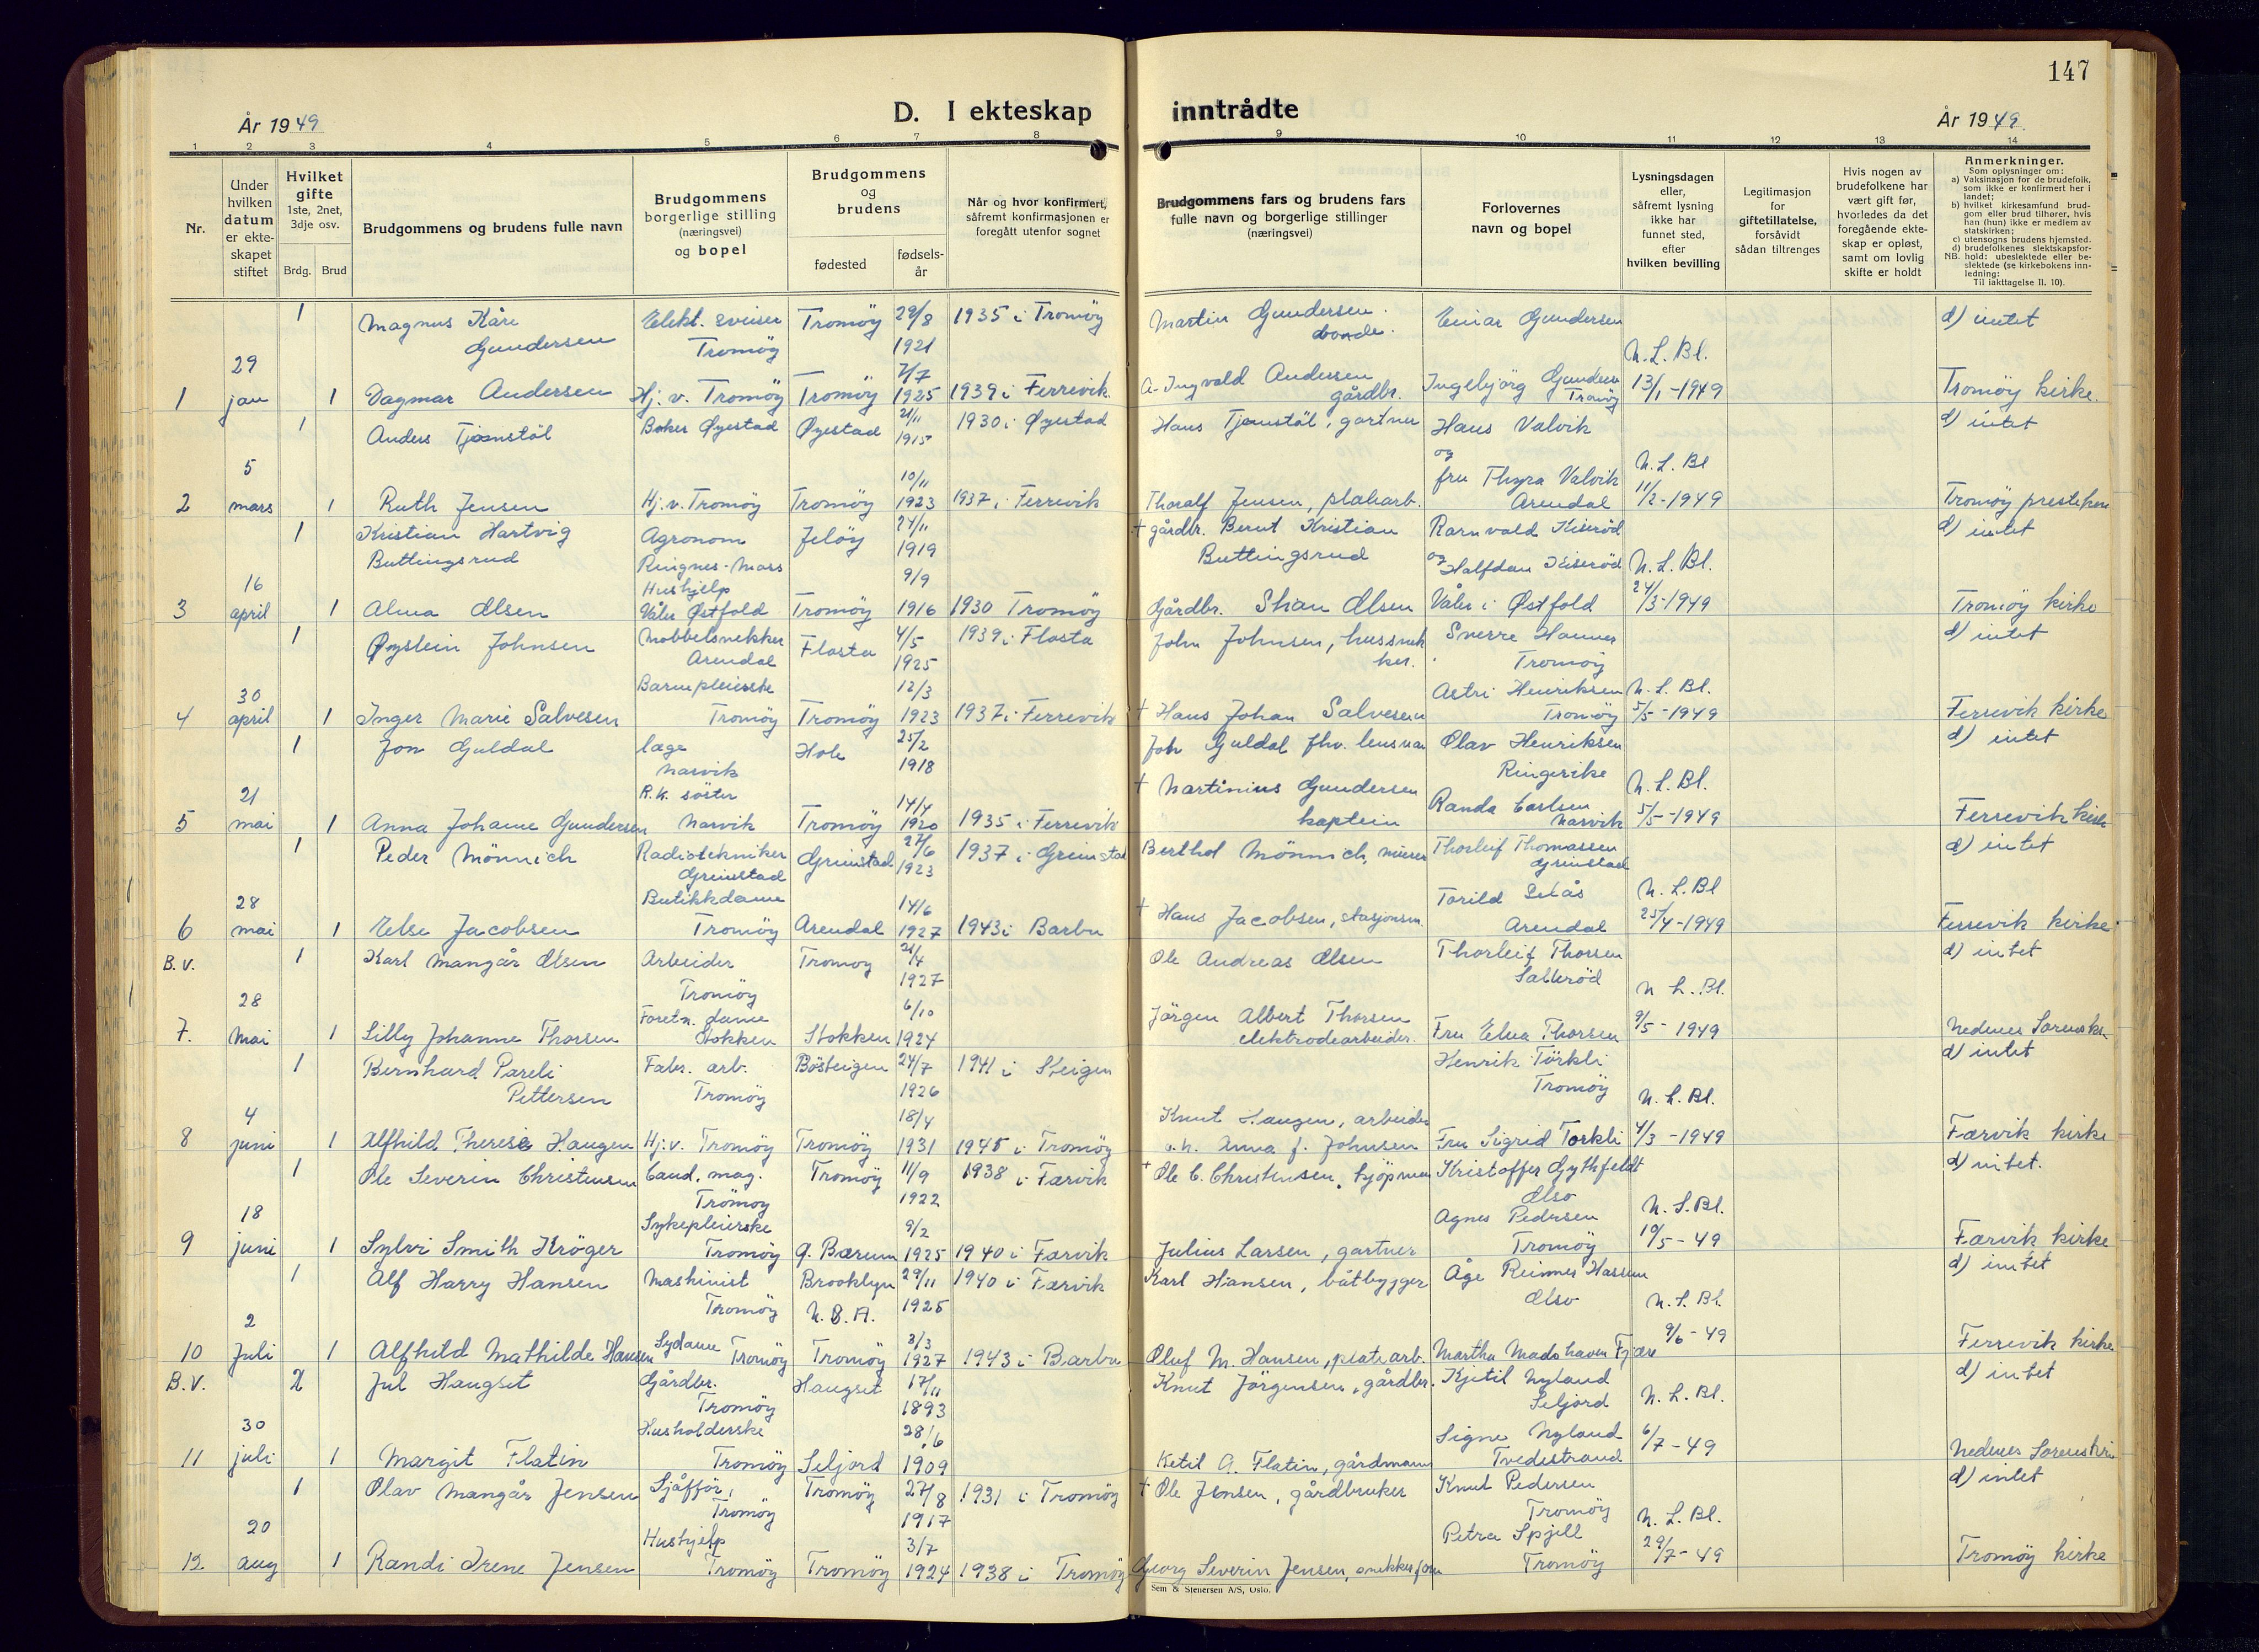 147
År 1949
D. I ekteskap inntrådte
År 1949.
1 2 3 4 5 6 7 8 9 10 11 12 13 14
Nr.
Under hvilken datum er ekteskapet stiftet
Hvilket gifte
1ste, 2net, 3dje osv.
Brdg. Brud
Brudgommens og brudens fulle navn
Brudgommens borgerlige stilling (næringsvei) og bopel
Brudgommens og brudens
fødested
fødsels-år
Når og hvor konfirmert, såfremt konfirmasjonen er foregått utenfor sognet
Brudgommens fars og brudens fars fulle navn og borgerlige stillinger (næringsvei)
Forlovernes navn og bopel
Lysningsdagen eller, såfremt lysning ikke har funnet sted, efter hvilken bevilling
Legitimasjon for giftetillatelse, forsåvidt sådan tiltrenges
Hvis nogen av brudefolkene har vært gift før, hvorledes da det foregående ekteskap er opløst, samt om lovlig skifte er holdt
Anmerkninger.
Som oplysninger om:
a) Vaksinasjon for de brudefolk, som ikke er konfirmert her i landet;
b) hvilket kirkesamfund brudgom eller brud tilhører, hvis han (hun) ikke er medlem av statskirken;
c) utensogns brudens hjemsted.
d) brudefolkenes slektskapsforhold: ubeslektede eller beslektede (se kirkebokens innledning:
NB.
Til iakttagelse II. 10).
1 Magnus Kåre Gundersen Elekt. sveiser Tromöy Tromöy 29/8 1921 1935 i Tromöy Martin Gundersen bonde. Einar Gundersen d) intet
1 29 jan 1 Dagmar Andersen Hj. v. Tromöy Tromöy 7/7 1925 1939 i Ferrevik. A. Ingvald Andersen gårdbr. Ingebjörg Gunders Tromöy N. L. Bl. 13/1-1949 Tromöy kirke.
1 Anders Tjomstöl Baker Øyestad Øyestad 21/11 1915 1930 i Øyestad Hans Tjomstöl, gartner Hans Valvik og d) intet
2 5 mars 1 Ruth Jensen Hj. v. Tromöy Tromöy 10/11 1923 1937 i Ferrevik Thoralf Jensen, platearb. fru Thyra Valvik Arendal N. L. Bl 11/2-1949 Tromöy
1 Kristian Hartvig Buttingsrud Agronom Ringnes-Moss Jelöy 24/11 1919 † gårdbr. Bernt Kristian Buttingsrud Ragnvald Kiseröd og d) intet
3 16 april 1 Alma Olsen Hushjelp Våler Østfold Tromöy 9/9 1916 1930 Tromöy Gårdbr. Olsen Halfdan Kiseröd Våler i Østfold N. L. Bl. 24/3-1949 Tromöy kirke
1 Øystein Johnsen Möbbelsnekker Arendal Flosta 4/5 1925 1939 i Flosta John Johnsen, hussnekker. Sverre Hanner Tromöy d) intet
4 30 april 1 Inger Marie Salvesen Barnepleierske Tromöy Tromöy 12/3 1923 1937 i Ferrevik † Hans Johan Salvesen Astri Henriksen Tromöy N. L. Bl. 5/5-1949 Ferrevik kirke
1 Jon Guldal læge Narvik Hole 25/2 1918 Joh Guldal fhv. lensman Olav Henriksen Ringerike d) intet
5 21 mai 1 Anna Johanne Gundersen R.K. söster Narvik Tromöy 14/4 1920 1935 i Ferrevik † Martinius Gundersen kaptein Randa Carlsen Narvik N. L. Bl. 5/5-1949 Ferrevik kirke
1 Peder Mönnich Radiotekniker Grimstad Grimstad 27/6 1923 1937 i Grimstad Berthol Mönnich, murer Thorleif Thomassen Grimstad d) intet
6 28 mai 1 Else Jacobsen Butikkdame Tromöy Arendal 14/6 1927 1943 i Barbu † Hans Jacobsen, stasjonsm. Torild Arendal N. L. Bl 25/4-1949 Ferrevik kirke
B.V. 1 Karl Mangår Olsen Arbeider Tromöy Tromoy 21/4 1927 Ole Andreas Olsen Thorleif Thorsen Salteröd d) intet
7. 28 mai 1 Lilly Johanne Thorsen Foretn. dame Stokken Stokken 6/10 1924 Jörgen Albert Thorsen elektrodearbeider. Fru Elna Thorsen N. L. Bl. 9/5-1949 Nedenes Sorensk.
1 Bernhard Pareli Pettersen Fabr. arb. Tromöy 24/7 1926 1941 i Steigen Henrik Törkli Tromöy d) intet
8 4 juni 1 Alfhild Therese Haugen Hj. v. Tromöy Tromöy 18/4 1931 1945 i Tromöy Knut Haugen, arbeider o.h. Anna f. Johnsen Fru Sigrid Torkli N. L. Bl. 4/3-1949 Færvik kirke
1 Ole Severin Christensen Cand. mag. Tromoy Tromöy 11/9 1922 1938 i Færvik † Ole C. Christensen, kjöpman Kristoffer Gythfeldt Olso d) intet.
9 18 juni 1 Sylvi Smith Kröger Sykepleierske Tromöy Ø. Bærum 9/2 1925 1940 i Færvik Julius Larsen, gartner Agnes Pedersen Tromöy N. L. Bl. 19/5-49 Færvik kirke
1 Alf Harry Hansen Maskinist Tromöy Brooklyn U.S.A. 29/11 1925 1940 i Færvik Karl Hansen, båtbygger Åge Reimer Hassen Olso d) intet
10 2 Juli 1 Alfhild Mathilde Hansen Sydame Tromöy Tromöy 3/3 1927 1943 i Barbu Oluf M. Hansen, platearb. Martha Madshaven Fjære N. L. Bl. 9/6-49 Ferrevik kirke
B.V. 2 Jul Haugset Gårdbr. Tromöy Haugset 17/11 1893 Knut Jörgensen, gårdbr. Kjetil Nyland Seljord d) intet
11 30 juli 1 Margit Flatin Husholderske Tromöy Seljord 28/6 1909 Ketil A. Flatin, gårdmann Signe Nyland Tvedestrand N. L. Bl. 6/7-49 Nedenes Sorenskri
1 Olav Mangår Jensen Sjåffør, Tromöy Tromöy 27/8 1917 1931 i Tromöy † Ole Jensen, gårdbruker Knut Pedersen Tromöy d) intet
12. 20 aug 1 Randi Irene Jensen Hushjelp Tromöy Tromöy 3/7 1924 1938 i Tromöy Georg Severin Jensen, snekkerform Petra Spjell Tromöy N. L. Bl. 29/7-49 Tromöy kirke
Sem & Stenersen A/S, Oslo.